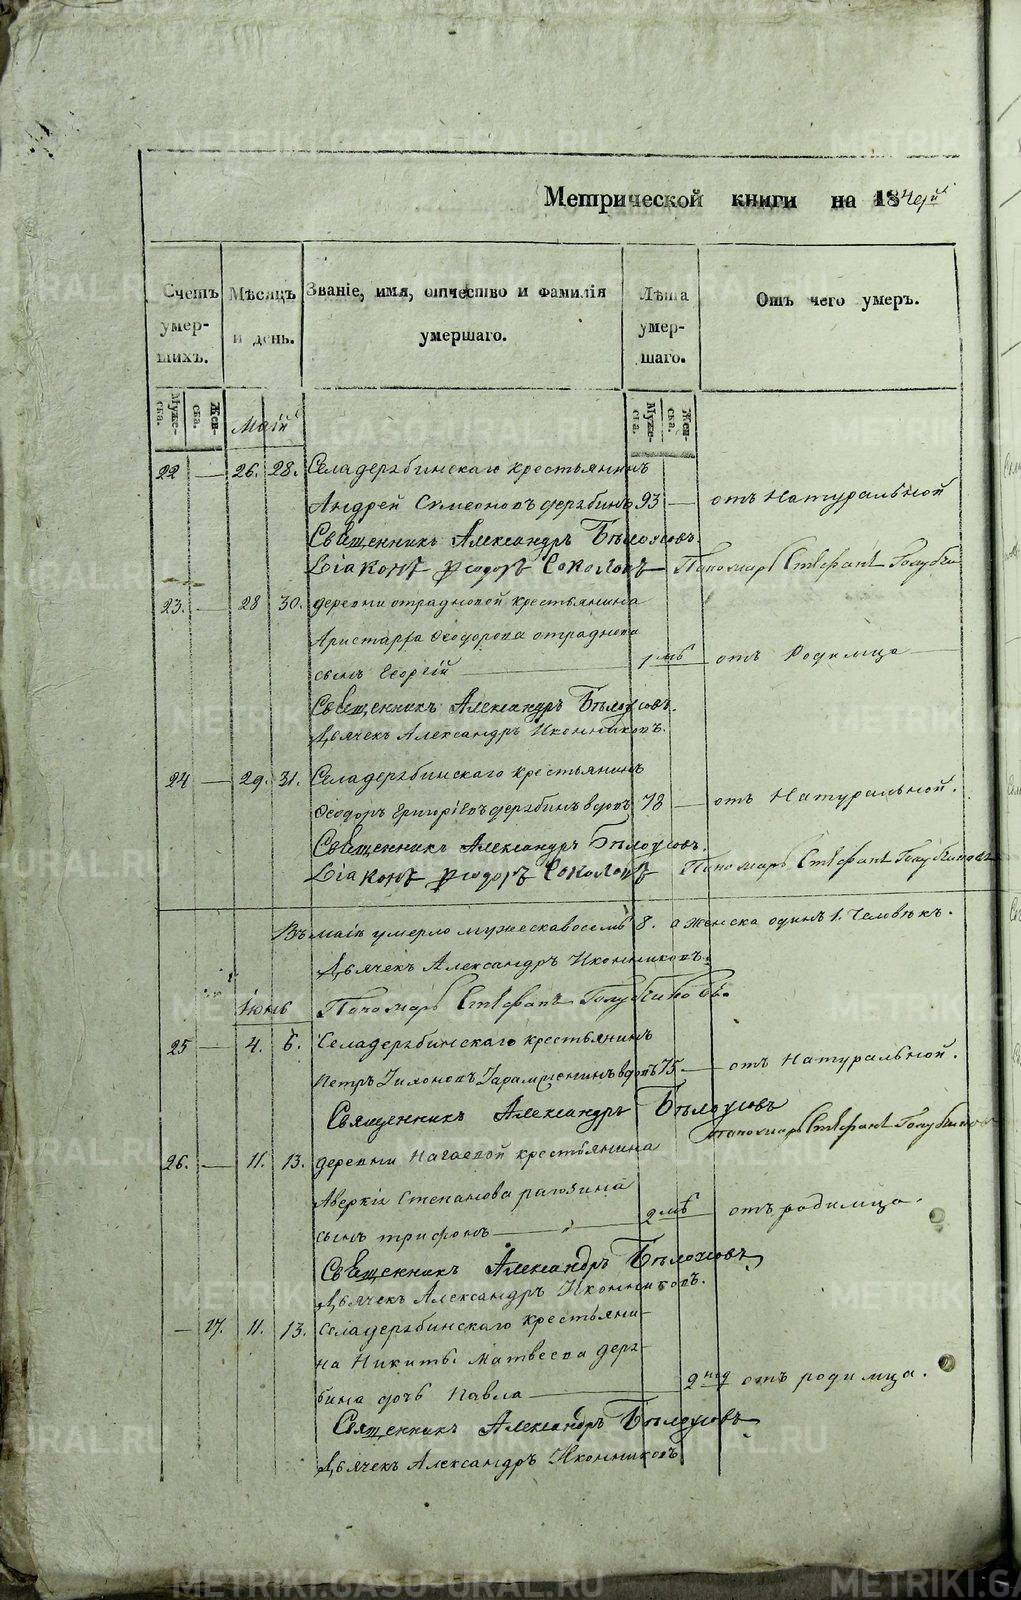 Метрической книги на 184
Счетъ умер- шихъ.
Мѣсяцъ и день.
Званіе, имя, отчество и фамилія умершаго.
Лѣта умер- шаго.
Отъ чего умеръ.
Муже- ска. Жен- ска.
Маій
Муже- ска. Жен- ска.
22 — 26. 28. Села дерябинскаго крестьянинъ
Андрей Симеоновъ дерябинъ 93 — отъ Натуральной
Священникъ Александръ Бѣлоусовъ.
Діаконъ Ѳеодоръ Соколовъ Пономарь Стефанъ Голубчи
23. — 28 30. деревни отрадновой крестьянина
Аристарха Ѳеодорова отраднова
сынъ Георгій — 1 мѣ — отъ Родимца —
Священникъ Александръ Бѣлоусовъ.
Дьячекъ Александръ Иконниковъ.
24 — 29. 31. Села дерябинскаго крестьянинъ
Ѳеодоръ Григоріевъ дерябинъ вдовъ 78 — отъ Натуральной.
Священникъ Александръ Бѣлоусовъ.
Діаконъ Ѳеодоръ Соколовъ Пономарь Стефанъ Голубчиковъ
Въ маіѣ умерло мужеска восемь 8. а женска одинъ 1. Человѣкъ.
Дьячекъ Александръ Иконниковъ.
Іюнь Пономарь Стефанъ Голубчиковъ.
25 — 4. 6. Села дерябинскаго крестьянинъ
Петръ Тихоновъ вдовъ 75. — отъ Натуральной.
Священникъ Александръ Бѣлоусовъ
Пономарь Стефанъ Голубчиковъ
26. — 11. 13. деревни Нагаевой крестьянина
Аверкія Степанова рагозина
сынъ трифонъ — 2 мѣ — отъ родимца.
Священникъ Александръ Бѣлоусовъ
Дьячекъ Александръ Иконниковъ.
— 17. 11. 13. Села дерябинскаго крестьяни-
на Никиты Матвеева деря-
бина дочь Павла — 2 нед отъ родимца.
Священникъ Александръ Бѣлоусовъ
Дьячекъ Александръ Иконниковъ
METRIKI.GASO-URAL.RU